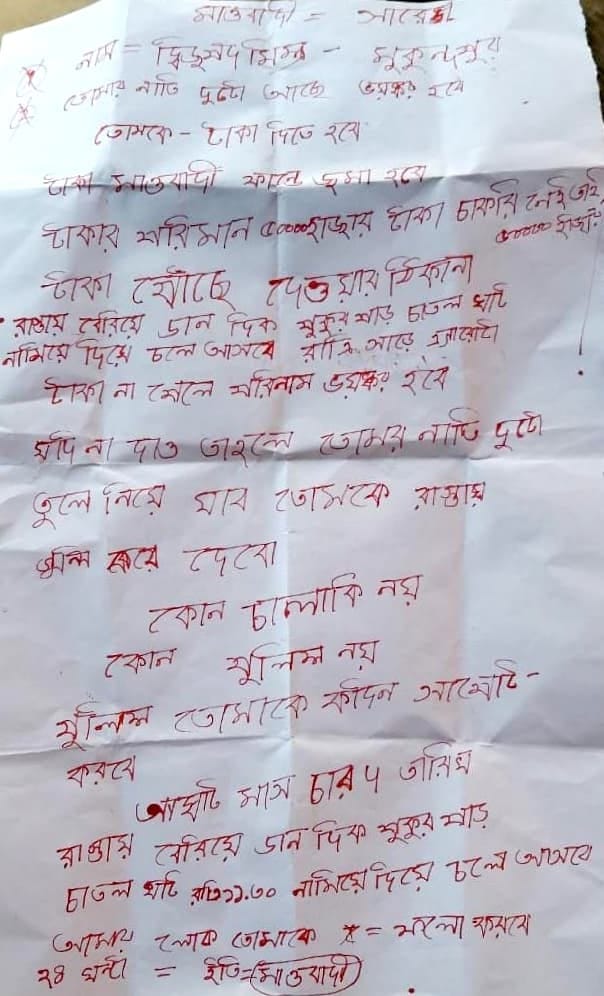 মাওবাদী = সারেঙ্গা
নাম = দ্বিজপদ মিশ্র - মুকুন্দপুর
তোমার নাতি দুটো আছে ভয়ঙ্কর হবে
তোমকে - টাকা দিতে হবে
টাকা মাওবাদী ফান্ডে জমা হবে
টাকার পরিমান ৫০০০০হাজার টাকা চাকরি নেই তাই
৫০০০০ হাজার
টাকা পৌঁছে দেওয়ার ঠিকানা
রাস্তায় বেরিয়ে ডান দিক পুকুর পাড় চাতল ঘাট
নামিয়ে দিয়ে চলে আসবে রাত্রি সাড়ে এগারোটা
টাকা না পেলে পরিনাম ভয়ঙ্কর হবে
যদি না দাও তাহলে তোমার নাতি দুটো
তুলে নিয়ে যাব তোমকে রাস্তায়
গুলি করে দেবো
কোন চালাকি নয়
কোন পুলিশ নয়
পুলিশ তোমাকে কদিন সাপোর্ট -
করবে
মাস চার ৭ তারিখ
রাস্তায় বেরিয়ে ডান দিক পুকুর পাড়
চাতল ঘাট ১১.৩০ নামিয়ে দিয়ে চলে আসবে
আমার লোক তোমাকে = ফলো করবে
২৪ ঘন্টা = ইতি = মাওবাদী